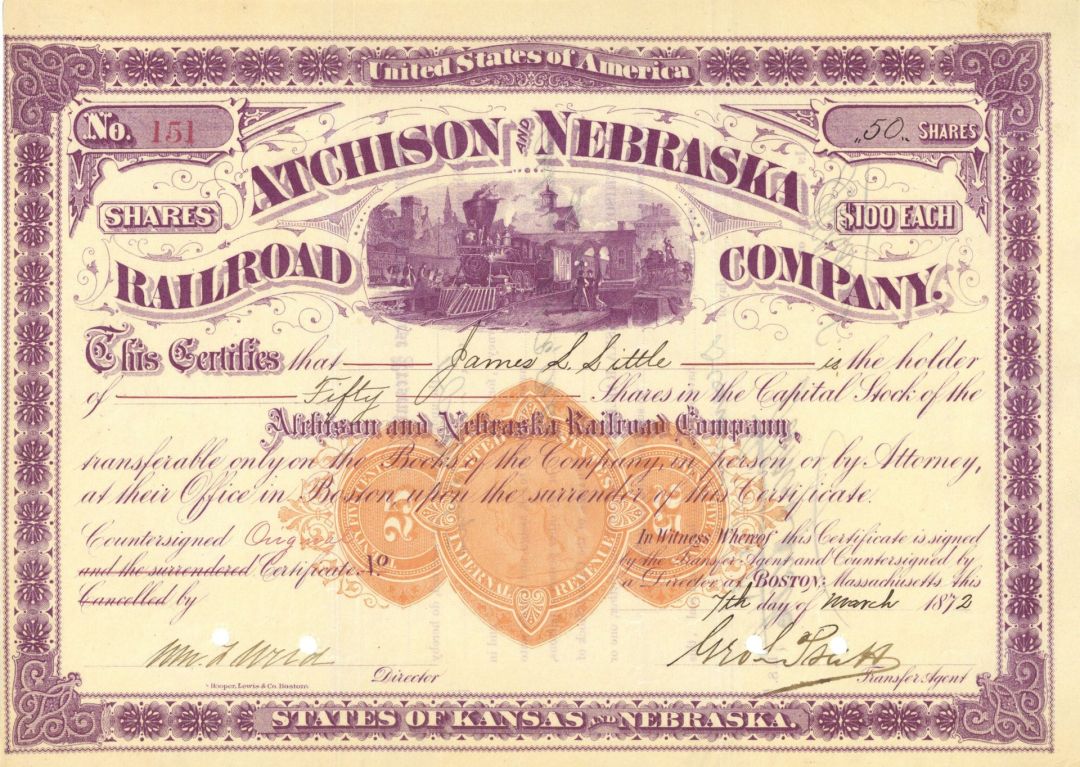 United States of America
No. 151
50 SHARES
ATCHISON AND NEBRASKA
SHARES $100 EACH
RAILROAD COMPANY.
This Certifies that James L. Little is the holder
of Fifty Shares in the Capital Stock of the
Atchison and Nebraska Railroad Company,
transferable only on the Books of the Company, in person or by Attorney,
at their Office in Boston upon the surrender of this Certificate.
25 25
UNITED STATES
INTERNAL REVENUE
Countersigned Original
and the surrendered Certificate No
Cancelled by
In Witness Whereof this Certificate is signed
by the Transfer Agent and Countersigned by
a Director at BOSTON, Massachusetts this
7th day of March 1872
Director
Transfer Agent
Hooper, Lewis & Co. Boston.
STATES OF KANSAS AND NEBRASKA.